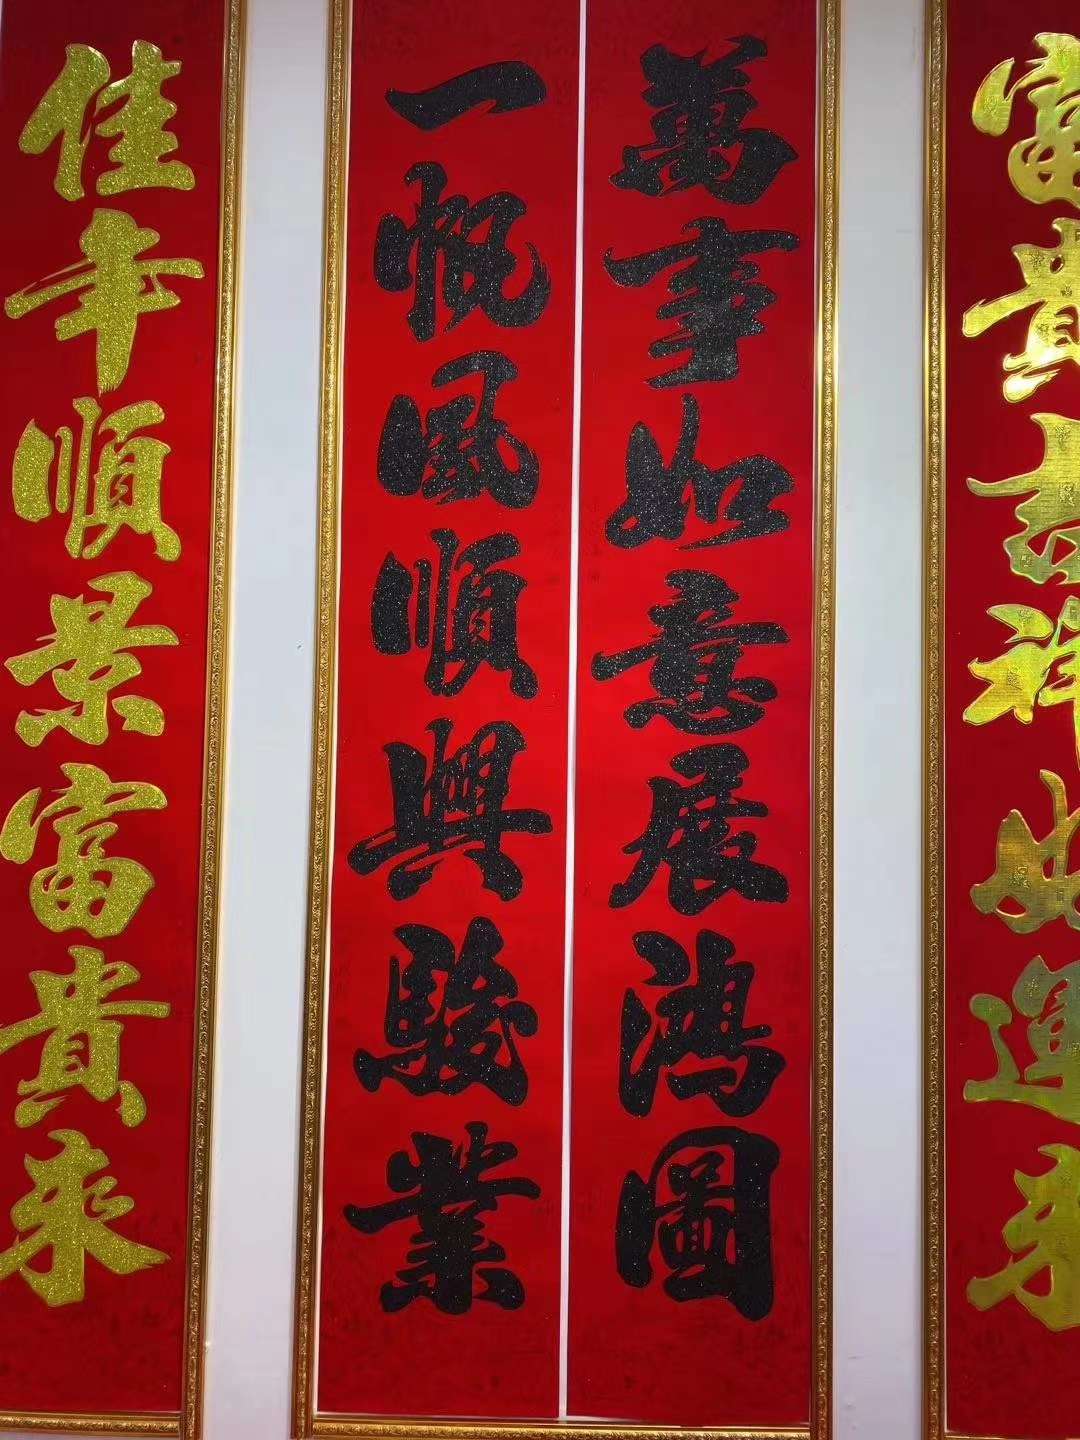 富貴吉祥好運來
萬事如意展鴻圖
一帆風順興駿業
佳年順景富貴來